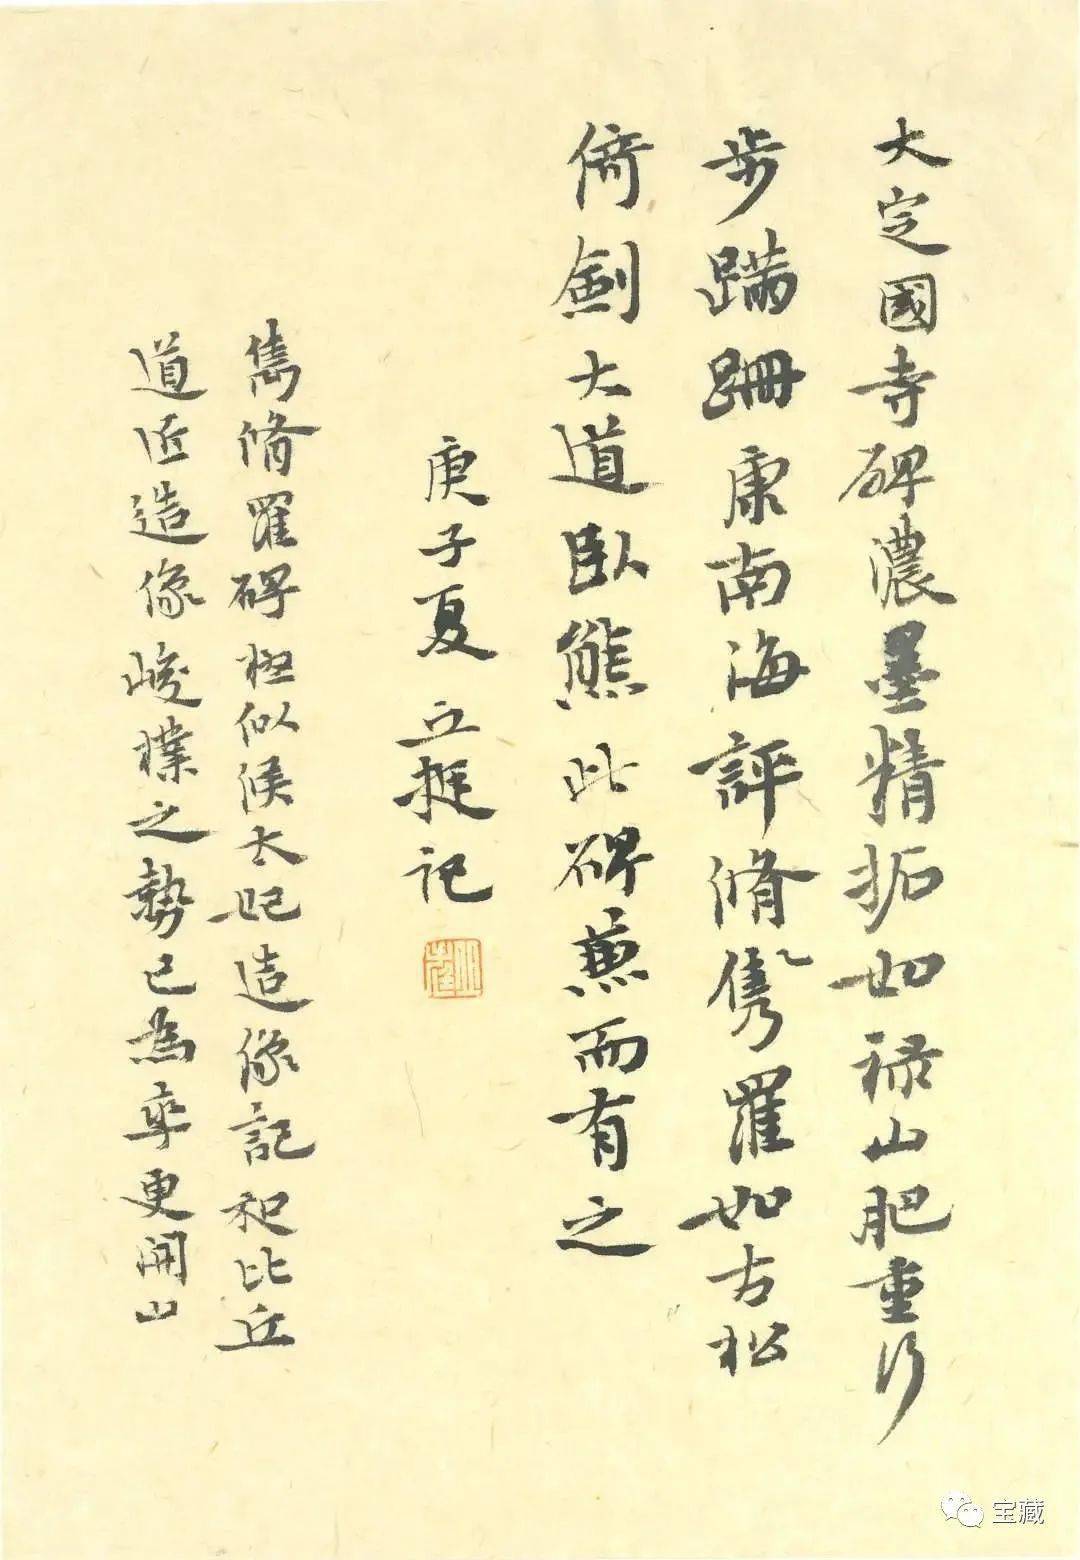 大定國寺碑濃墨精拓如祿山肥重行
步蹣跚康南海評脩雋羅如古松
倚劍大道臥熊此碑兼而有之
庚子夏立挺記
雋脩羅碑極似侯太妃造像記和比丘
道匠造像峻樸之勢已為率更開山
宝藏